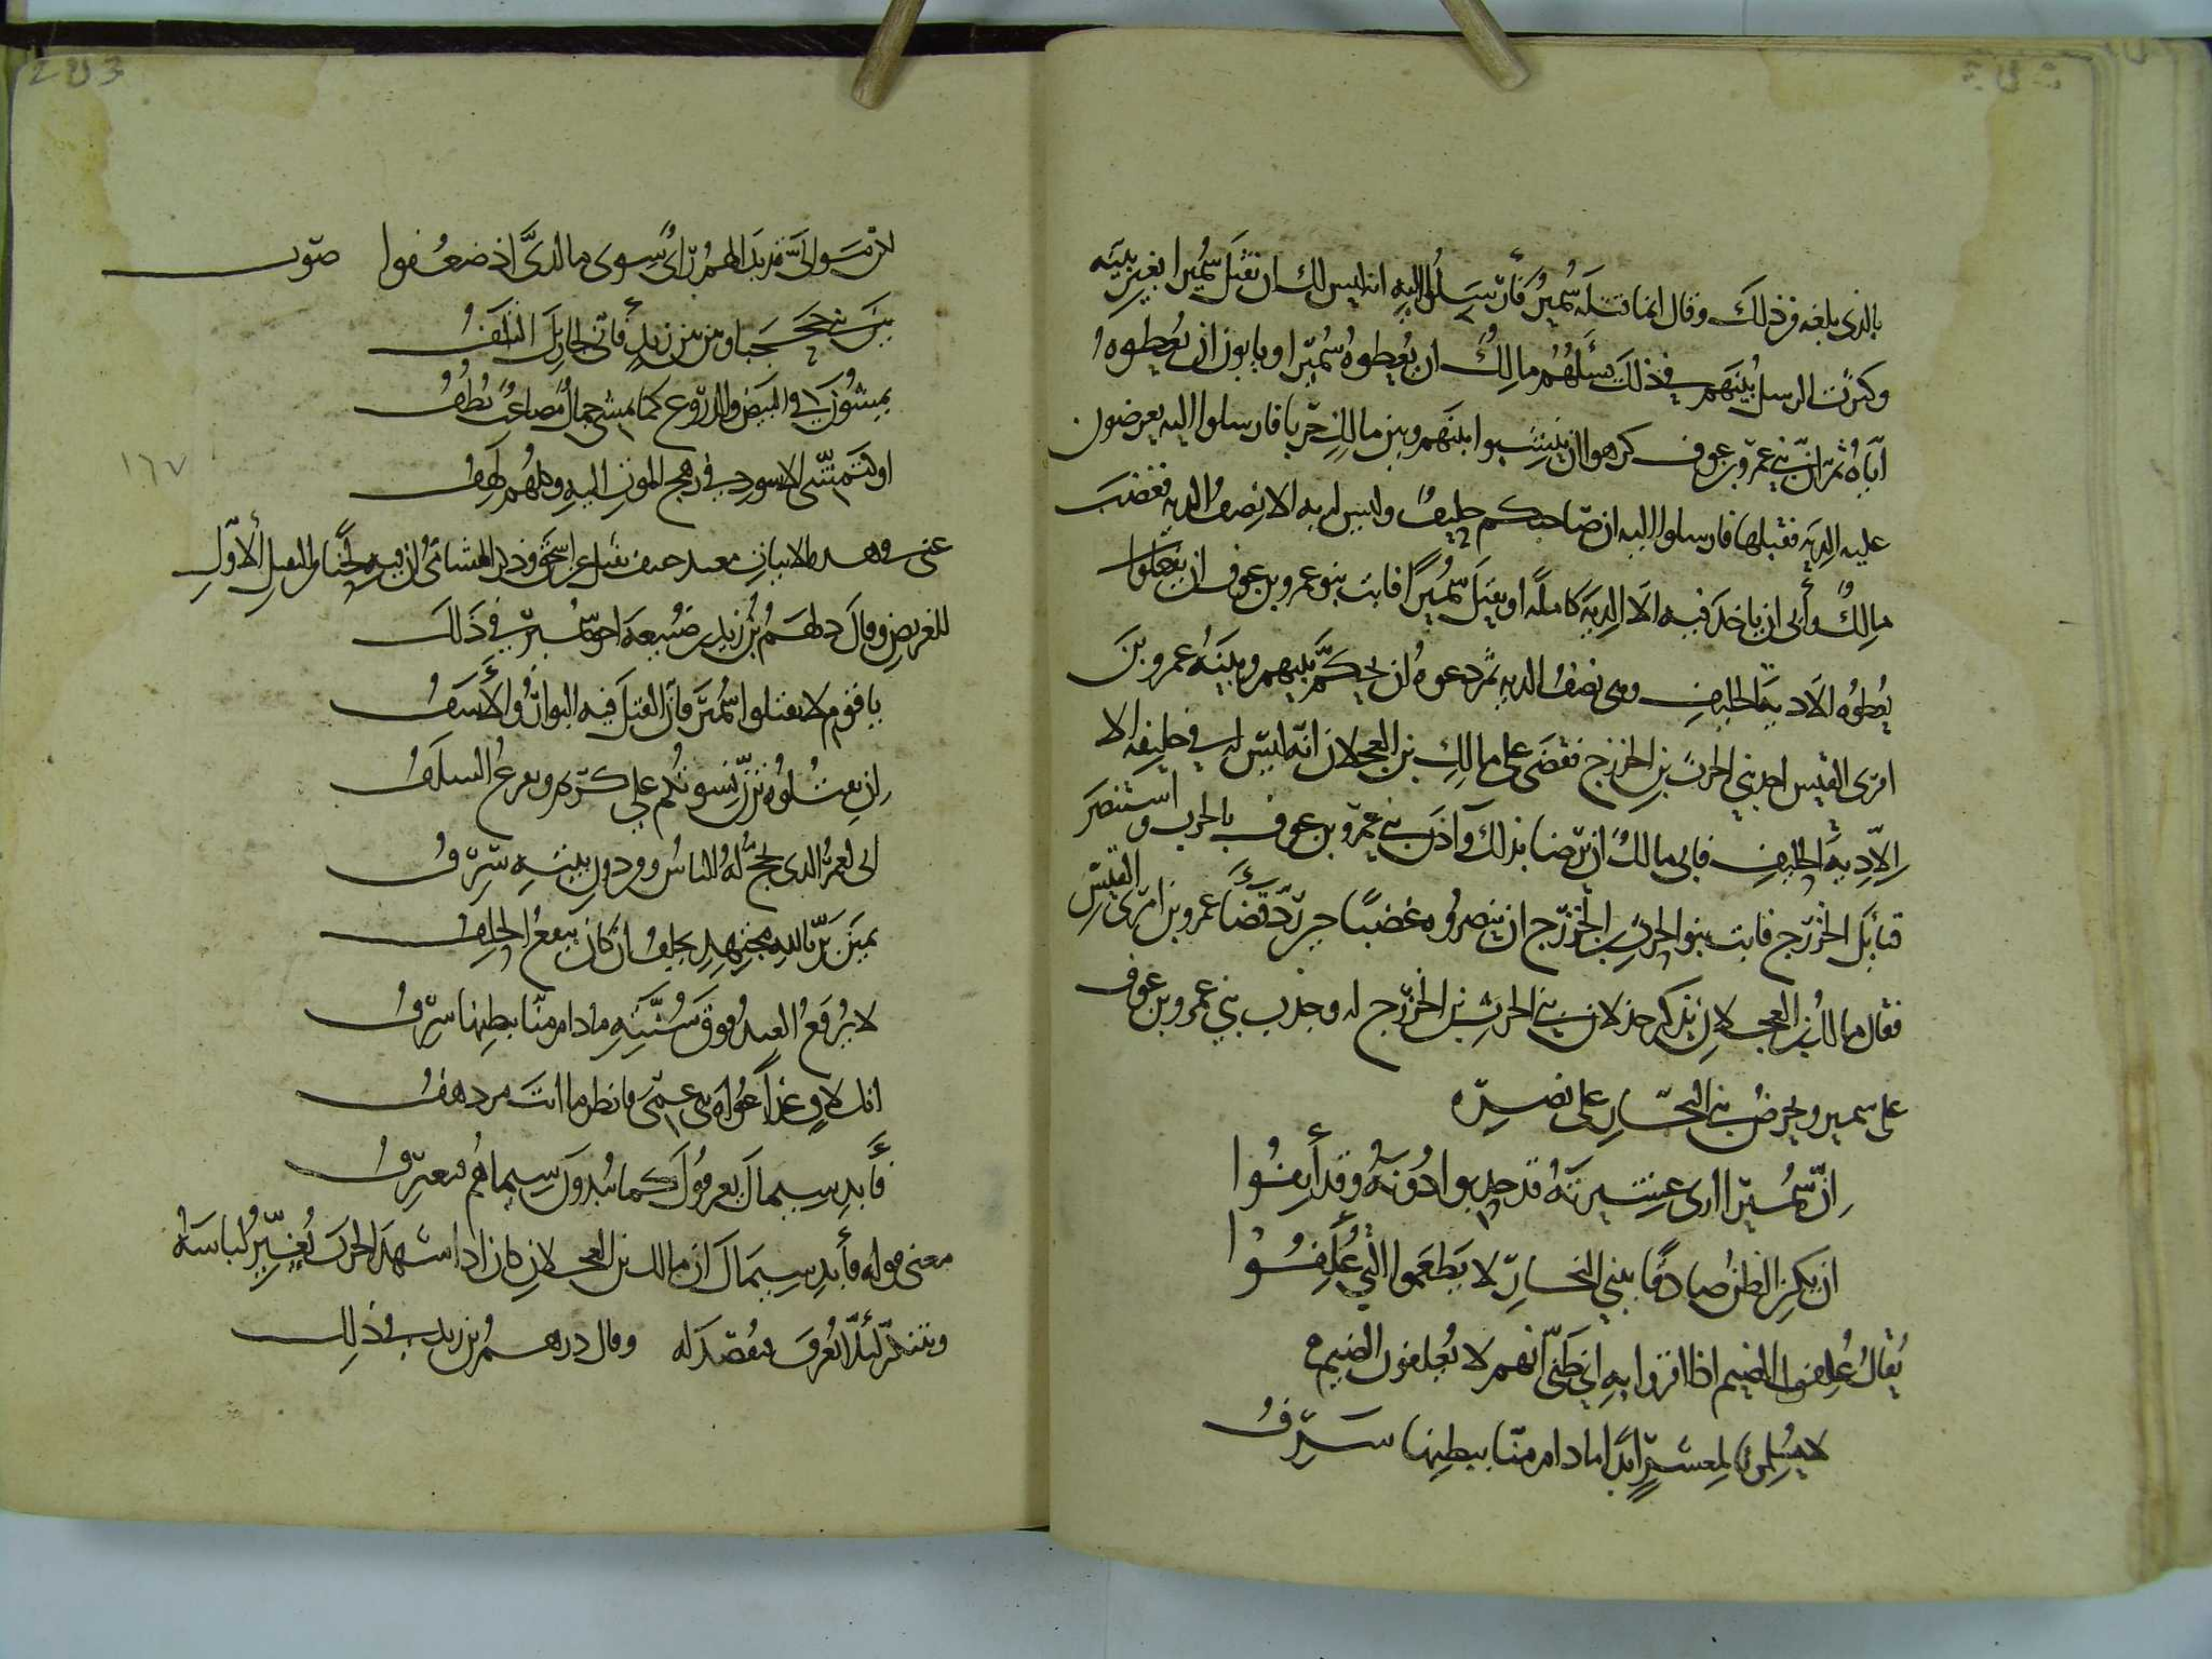 بالذي بلغه من ذلك وقال انما قتله سُمير فأرسلوا اليه انه ليس لك ان تقتل سُميرا بغير بينه
وكثرت الرسل بينهم في ذلك يسئلهم مالك ان يُعطوه سُميرا ويابون ان يُعطوهُ
اياه ثم ان بني عمرو بن عوف كرهوا ان ينشبوا بينهم وبين مالك حربا فارسلوا اليه يعرضون
عليه الدية فقبلها فارسلوا اليه ان صاحبكم حليف وليس لدىه الا نصف الديه فغضب
مالك وأبى ان ياخذ فيه الا الدية كاملة او يقتل سُميرا فابت بنو عمرو بن عوف ان يعطوا
يُعطوه الا دية الحليف وهى نصف الديه ثم دعوه ان يحكم بينهم وبينه عمرو بن
امرئ القيس احد بني الحرث بن الخزرج فقضى على مالك بن العجلان انه ليس له في حليفه الا
الا دية الحليف فابى مالك ان يرضا بذلك وآذن بني عمرو بن عوف بالحرب واستنصر
قبائل الخزرج فابت بنو الحرث بن الخزرج ان ينصروه غضبا حين رد قضآ عمرو بن امرئ القيس
فقال مالك بن العجلان يذكر خذلان بني الحرث بن الخزرج له وحدب بني عمرو بن عوف
على سمير ويحرض بني النجار على نصره
ان سُميرا ارى عشيرته قد حدبوا دُونهُ وقد أنفُوا
ان يكن الظن صادقا ببني النجار لا يطعموا الذي عُلفُوا
يُقالُ عُلفوا الضيم اذا اقروا به اي ظني انهم لا يُعلفون الضيم
لا يُسلمونا لمعشر ابدا ما دام منا ببطنها سرفُ
لكن موالي قد بدا لهم راى سوى ما لدي اذ ضعُفوا صوت
بين بني جحجبا وبين بني زيد فأنى لجاري التلفُ
يمشُون في البيض والدروع كما يمشي جمالٌ مصاعبٌ قُطُفُ
او تمشى الاسود في رهج الموت اليه وكلهم لهِفُ
غنى في هذه الابيات معبد خفيف ثقيل عن اسحق وذكر الهشامي ان فيه لحنا من الثقيل الأول
للغريض وقال درهم بن زيد بن ضبيعة اخو سُمير في ذلك
يا قوم لا تقتلوا سُميرا فان القتل فيه البوارُ والأسفُ
ان تقتلوه ترن نسوتكم على كريم ويفزع السلفُ
انى لعمر الذى يحج له الناسُ ومن دون بيته سرفُ
يمين بر بالله مجتهد يحلف ان كان ينفع الحلفُ
لا يُرفع العبد فوق سُنته ما دام منا ببطنها سرفُ
انك لاق غدا غواة بني عمى فانظر ما انت مزدهفُ
فأبد سيماك يعرفوك كما يُبدون سيماهم فتعترفُ
معنى قوله فأبد سيماك ان مالك بن العجلان كان اذا شهد الحرب يُغير لباسهُ
ويتنكر لئلا يُعرف فيُقصد له وقال درهم بن زيد في ذلك
١٦٧